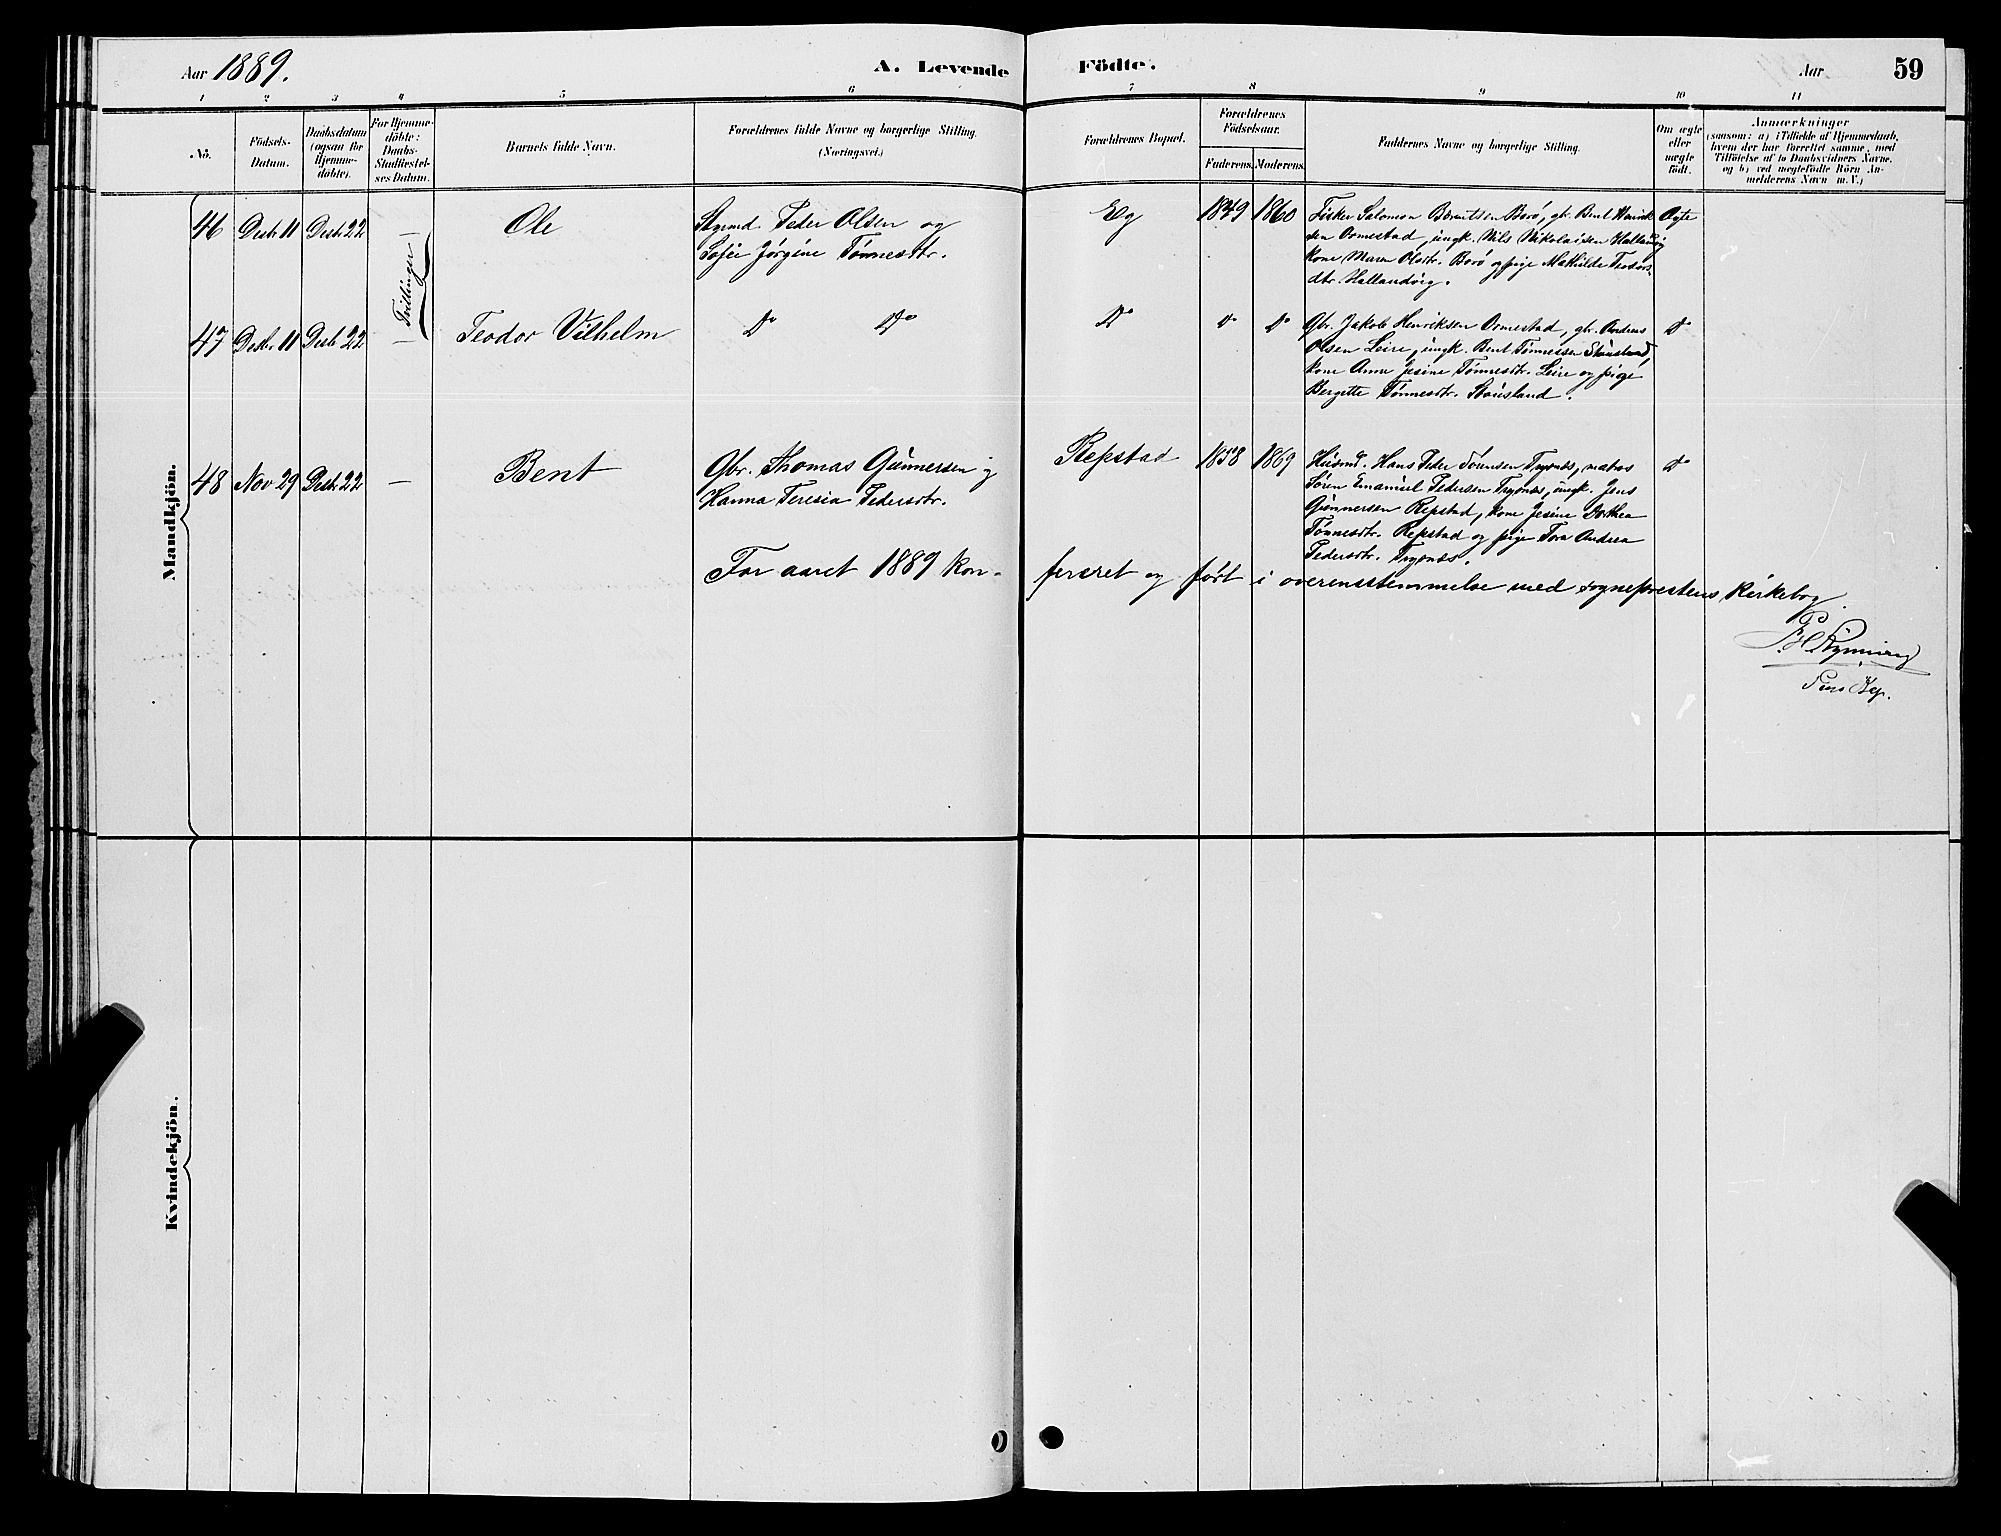 Aar 1889.
A. Levende Födte.
Aar
59
1 2 3 4 5 6 7 8 9 10 11
No.
Födsels-
Datum.
Daabsdatum
(ogsaa for
Hjemme-
döbte).
For Hjemme-
döbte:
Daabs-
Stadfæstel-
ses Datum.
Barnets fulde Navn.
Forældrenes fulde Navne og borgerlige Stilling.
(Næringsvei.)
Forældrenes Bopæl.
Forældrenes
Födselsaar.
Faderens. Moderens.
Faddernes Navne og borgerlige Stilling.
Om ægte
eller
uægte
födt.
Anmærkninger
(saasom: a) i Tilfælde af Hjemmedaab,
hvem der har forrettet samme, med
Tilföielse af to Daabsvidners Navne.
og b) ved uægtefödte Börn An-
melderens Navn m. V.)
Mandkjön.
46 Desbr 11 Desbr 22 — Ole
Styrmd. Peder Olsen og
Sofie Jørgine Tønnesdtr.
Eg 1849 1860
Fisker Salomon Berntsen Borø, gbr. Bent Henrik
sen Ormestad, ungk. Nils Nikolaisen Hallandvig
kone Maren Olsdtr. Borø og pige Mathilde Teodors-
dtr. Hallandvig.
Ægte
Tvillinger
47 Desbr 11 Desbr 22 — Teodor Vilhelm
Do Do
Do Do Do
Gbr. Jakob Henriksen Ormestad, gbr. Andreas
Olsen Leire, ungk. Bent Tønnessen Stausland,
kone Anne Jesine Tønnesdtr. Leire og pige
Bergette Tønnesdtr. Stausland.
Do
48 Nov 29 Desbr 22 — Bent
Gbr. Thomas Gunnersen og
Hanna Teresia Pedersdtr.
Repstad 1858 1869
Husmd. Hans Peder Sørensen Trysnæs, matros
Søren Emanuel Pedersen Trysnæs, ungk. Jens
Gunnersen Repstad, kone Jesine Dorthea
Tønnesdtr. Repstad og pige Tora Andrea
Pedersdtr. Trysnæs.
Do
For aaret 1889 konfereret og ført i overensstemmelse med sogneprestens kirkebog.
Kvindekjön.